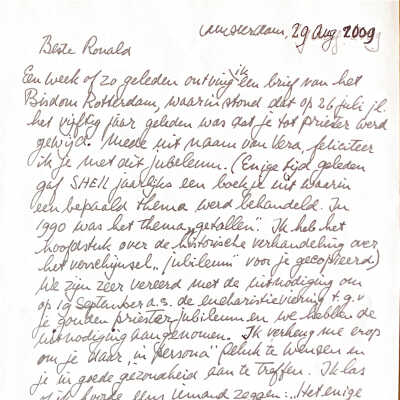 Amsterdam, 29 Aug 2009
Beste Ronald
Een week of zo geleden ontving ik een brief van het
Bisdom Rotterdam, waarin stond dat op 26 juli jl.
het vijftig jaar geleden was dat je tot priester werd
gewijd. Mede uit naam van Vera, feliciteer
ik je met dit Jubeleum. (Enige tijd geleden
gaf SHELL jaarlijks een boekje uit waarin
een bepaald thema werd behandeld. In
1990 was het thema „getallen". Ik heb het
hoofdstuk over de historische verhandeling over
het verschijnsel „jubileum" voor je gecopieerd)
We zijn zeer vereerd met de uitnodiging om
op 19 September a.s. de eucharistieviering t.g.v
je gouden priesterjubileum en we hebben de
uitnodiging aangenomen. Ik verheug me erop
om je daar „in persona" geluk te wensen en
je in goede gezondheid aan te treffen. Ik las
of ik hoorde eens iemand zeggen: „Het enige